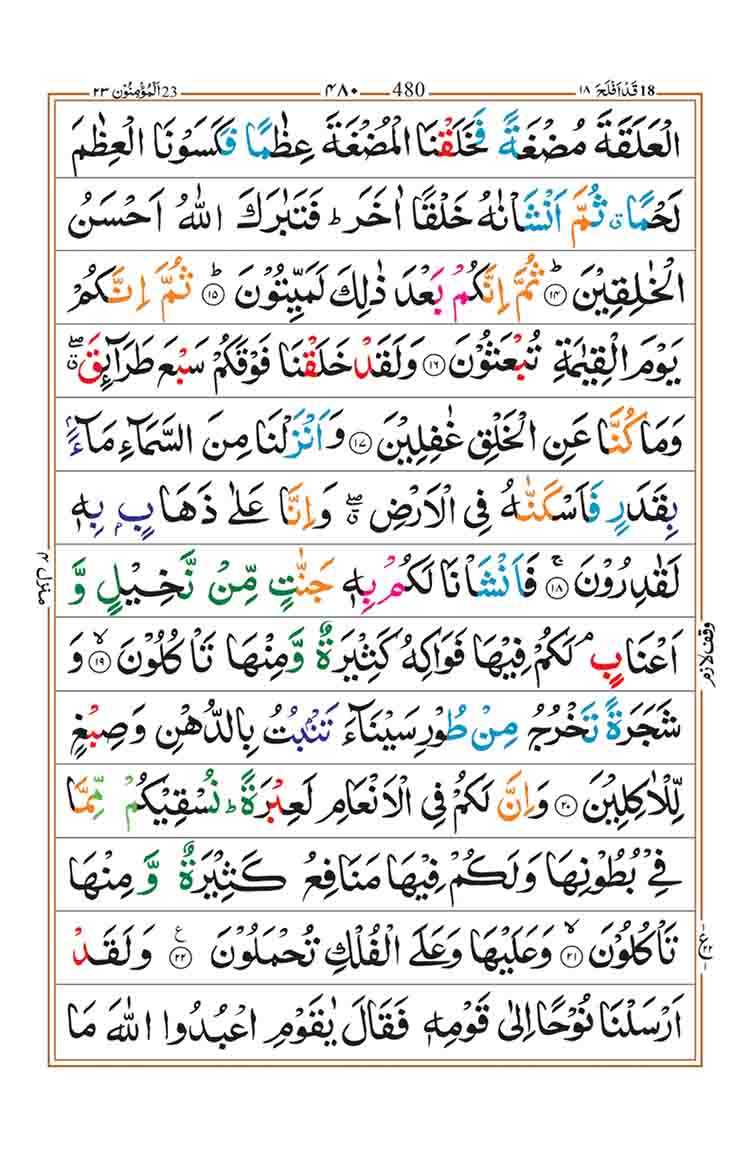 18 قَدْ اَفْلَحَ ١٨ 480 ۴۸۰ 23 اَلْمُؤْمِنُوْن ٢٣
الْعَلَقَةَ مُضْغَةً فَخَلَقْنَا الْمُضْغَةَ عِظٰمًا فَكَسَوْنَا الْعِظٰمَ
لَحْمًا ۗ ثُمَّ اَنْشَاْنٰهُ خَلْقًا اٰخَرَ ؕ فَتَبٰرَكَ اللّٰهُ اَحْسَنُ
الْخٰلِقِيْنَ ؕ ۱۴ ثُمَّ اِنَّكُمْ بَعْدَ ذٰلِكَ لَمَيِّتُوْنَ ؕ ۱۵ ثُمَّ اِنَّكُمْ
يَوْمَ الْقِيٰمَةِ تُبْعَثُوْنَ ۱۶ وَلَقَدْ خَلَقْنَا فَوْقَكُمْ سَبْعَ طَرَآئِقَ ۖۗ
وَمَا كُنَّا عَنِ الْخَلْقِ غٰفِلِيْنَ ۱۷ وَاَنْزَلْنَا مِنَ السَّمَآءِ مَآءًۢ
بِقَدَرٍ فَاَسْكَنّٰهُ فِى الْاَرْضِ ۖۗ وَاِنَّا عَلٰى ذَهَابٍۢ بِهٖ
لَقٰدِرُوْنَ ۚ ۱۸ فَاَنْشَاْنَا لَكُمْ بِهٖ جَنّٰتٍ مِّنْ نَّخِيْلٍ وَّ
اَعْنَابٍ ۘ لَكُمْ فِيْهَا فَوَاكِهُ كَثِيْرَةٌ وَّمِنْهَا تَاْكُلُوْنَ ۙ ۱۹ وَ
شَجَرَةً تَخْرُجُ مِنْ طُوْرِ سَيْنَآءَ تَنْۢبُتُ بِالدُّهْنِ وَصِبْغٍ
لِّلْاٰكِلِيْنَ ۲۰ وَاِنَّ لَكُمْ فِى الْاَنْعَامِ لَعِبْرَةً ؕ نُسْقِيْكُمْ مِّمَّا
فِىْ بُطُوْنِهَا وَلَكُمْ فِيْهَا مَنَافِعُ كَثِيْرَةٌ وَّمِنْهَا
تَاْكُلُوْنَ ۙ ۲۱ وَعَلَيْهَا وَعَلَى الْفُلْكِ تُحْمَلُوْنَ ع ۲۲ وَلَقَدْ
اَرْسَلْنَا نُوْحًا اِلٰى قَوْمِهٖ فَقَالَ يٰقَوْمِ اعْبُدُوا اللّٰهَ مَا
منزل ۴
وقف لازم
ع ۲۲